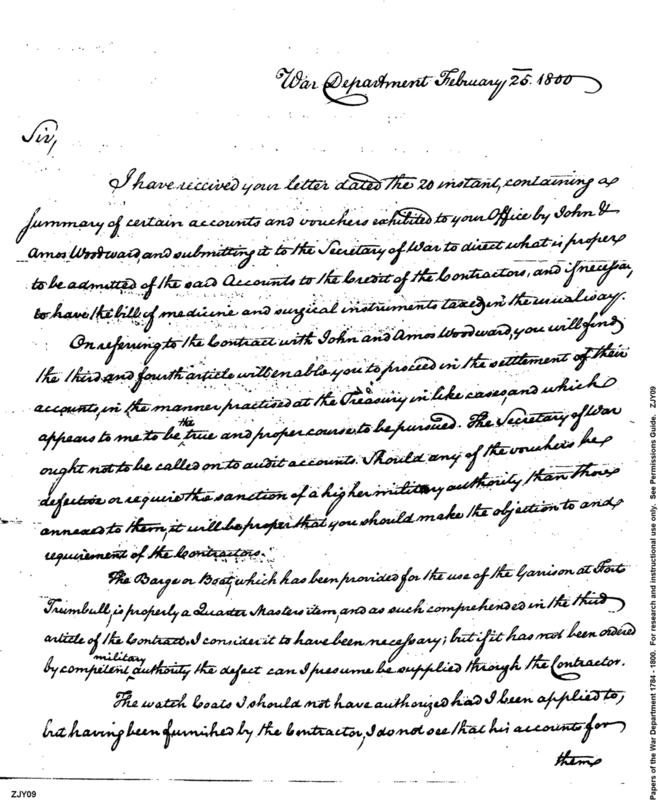 War Department February 25. 1800
Sir,
I have received your letter dated the 20 instant, containing a
Summary of certain accounts and vouchers exhibited to your Office by John &
Amos Woodward and submitting it to the Secretary of War to direct what is proper
to be admitted of the said Accounts to the Credit of the Contractors, and if necessary
to have the bill of medicine and surgical instruments taxed in the usual way.
On refering to the Contract with John and Amos Woodward, you will find
the third and fourth article will enable you to proceed in the settlement of their
accounts, in the manner practised at the Treasury in like cases and which
appears to me to be the true and proper course to be pursued. The Secretary of War
ought not to be called on to audit accounts. Should any of the vouchers be
defective or require the sanction of a higher military authority than those
annexed to them, it will be proper that you should make the objection to and
requirement of the Contractors.
The Barge or Boat, which has been provided for the use of the Garrison at Fort
Trumbull, is properly a Quarter Masters item, and as such comprehended in the third
article of the Contract. I consider it to have been necessary; but if it has not been ordered
by competent military authority the defect can I presume be supplied through the Contractor.
The watch Coats I should not have authorized had I been applied to,
but having been furnished by the Contractor, I do not see that his accounts for
them
ZJY09
Papers of the War Department 1784 - 1800. For research and instructional use only. See Permissions Guide. ZJY09